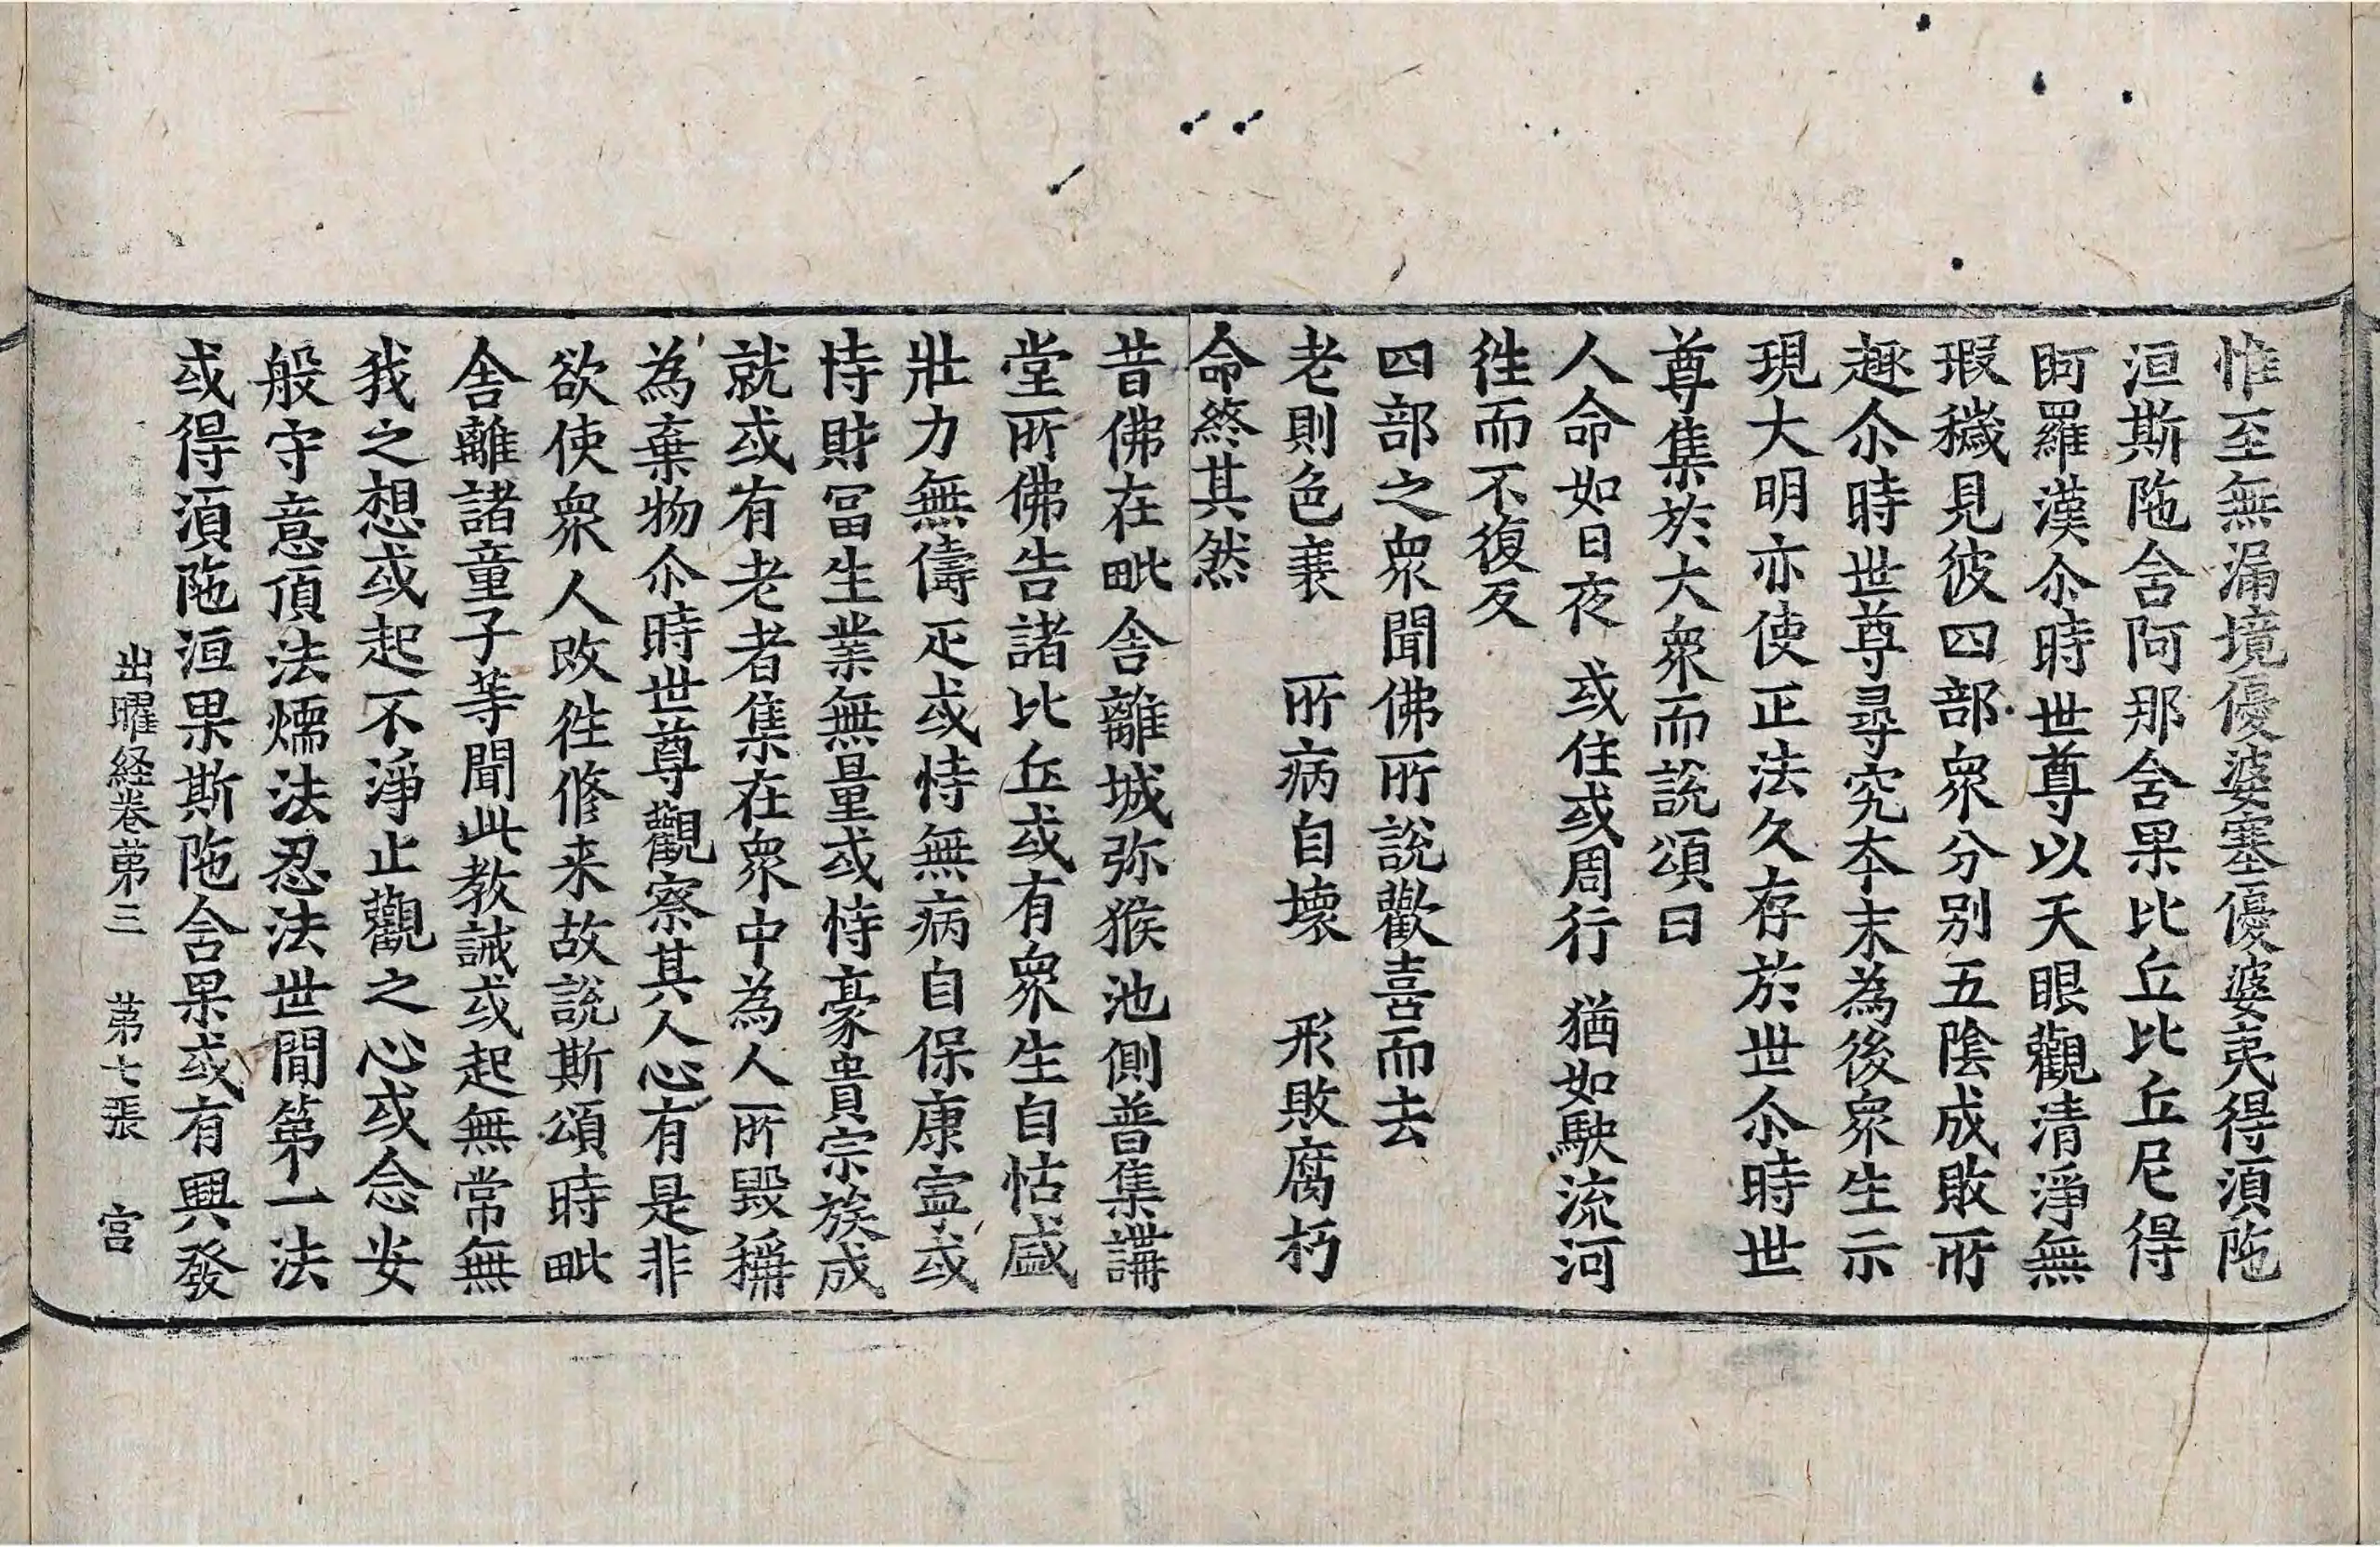 惟至無漏境優婆塞優婆夷得湏陁
洹斯陁含阿那含果比丘比丘尼得
阿羅漢尒時世尊以天眼觀清淨無
瑕穢見彼四部衆分别五陰成敗所
趣尒時世尊尋究夲末為後衆生示
現大明亦使正法久存於世尒時世
尊集於大衆而說頌曰
人命如日夜 或住或周行 猶如駛流河
徃而不復反
四部之衆聞佛所說歡喜而去
老則色衰 所病自壞 形敗腐朽
命終其然
昔佛在毗舍離城弥猴池側普集講
堂所佛告諸比丘或有衆生自怙盛
壯力無儔疋或恃無病自保康寍或
恃財冨生業無量或恃豪貴宗族成
就或有老者集在衆中為人所毀稱
為棄物尒時世尊觀察其人心有是非
欲使衆人改徃修来故說斯頌時毗
舍離諸童子等聞此教誡或起無常無
我之想或起不淨止觀之心或念安
般守意頂法燸法忍法世間第一法
或得湏陁洹果斯陁含果或有興發
出曜経卷苐三 苐七張 宫